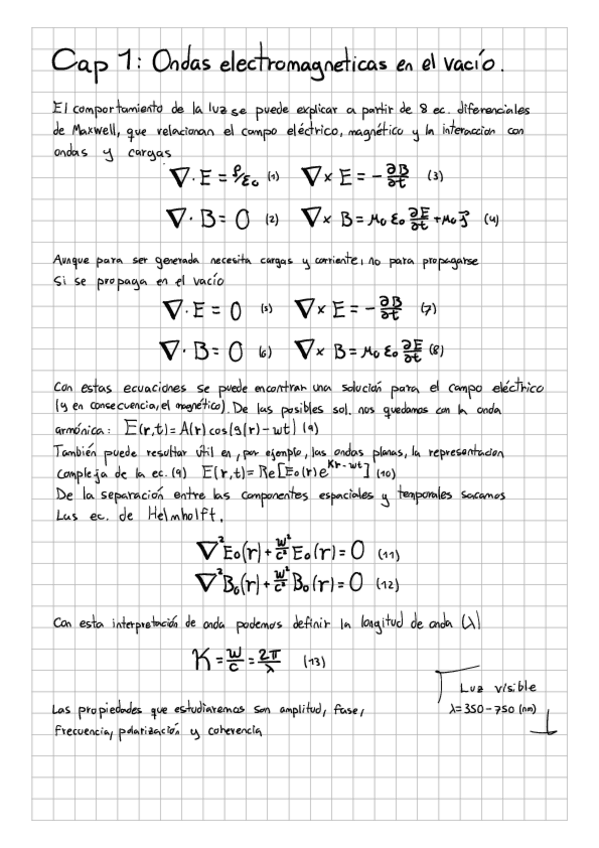 Cap 1: Ondas electromagneticas en el vacío.
El comportamiento de la luz se puede explicar a partir de 8 ec. diferenciales
de Maxwell, que relacionan el campo eléctrico, magnético y la interaccion con
ondas y cargas
∇·E = ρ/ε₀ (1) ∇×E = -∂B/∂t (3)
∇·B = 0 (2) ∇×B = μ₀ ε₀ ∂E/∂t + μ₀ J⃗ (4)
Aunque para ser generada necesita cargas y corriente, no para propagarse
Si se propaga en el vacío
∇·E = 0 (5) ∇×E = -∂B/∂t (7)
∇·B = 0 (6) ∇×B = μ₀ ε₀ ∂E/∂t (8)
Con estas ecuaciones se puede encontrar una solución para el campo eléctrico
(y en consecuencia, el magnético). De las posibles sol. nos quedamos con la onda
armónica: E(r,t) = A(r) cos(g(r) - wt) (9)
También puede resultar útil en, por ejemplo, las ondas planas, la representacion
compleja de la ec. (9) E(r,t) = Re[E₀(r) e^(Kr-wt)] (10)
De la separación entre las componentes espaciales y temporales sacamos
Las ec. de Helmholft.
∇²E₀(r) + w²/c² E₀(r) = 0 (11)
∇²B₀(r) + w²/c² B₀(r) = 0 (12)
Con esta interpretación de onda podemos definir la longitud de onda (λ)
K = w/c = 2π/λ (13)
Luz visible
λ = 350 - 750 (nm)
Las propiedades que estudiaremos son amplitud, fase,
frecuencia, polarización y coherencia